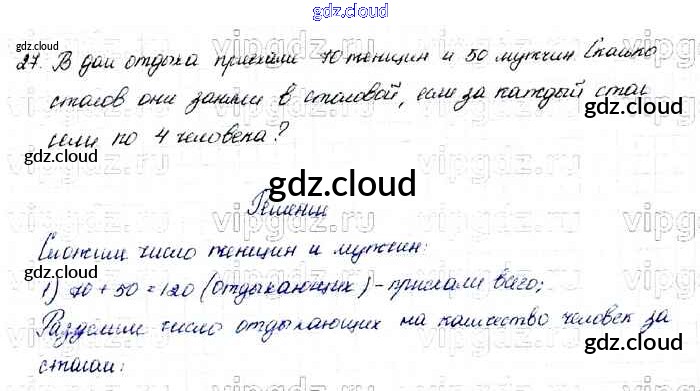 gdz.cloud
27. В дом отдыха приехали 70 женщин и 50 мужчин. Сколько
gdz.cloud
gdz.cloud
столов они заняли в столовой, если за каждый стол
gdz.cloud
сели по 4 человека?
gdz.cloud
gdz.cloud
Решение
Сложим число женщин и мужчин:
gdz.cloud
gdz.cloud
1) 70 + 50 = 120 (отдыхающих) – прислали всего;
Разделим число отдыхающих на количество человек за
gdz.cloud
gdz.cloud
столом: